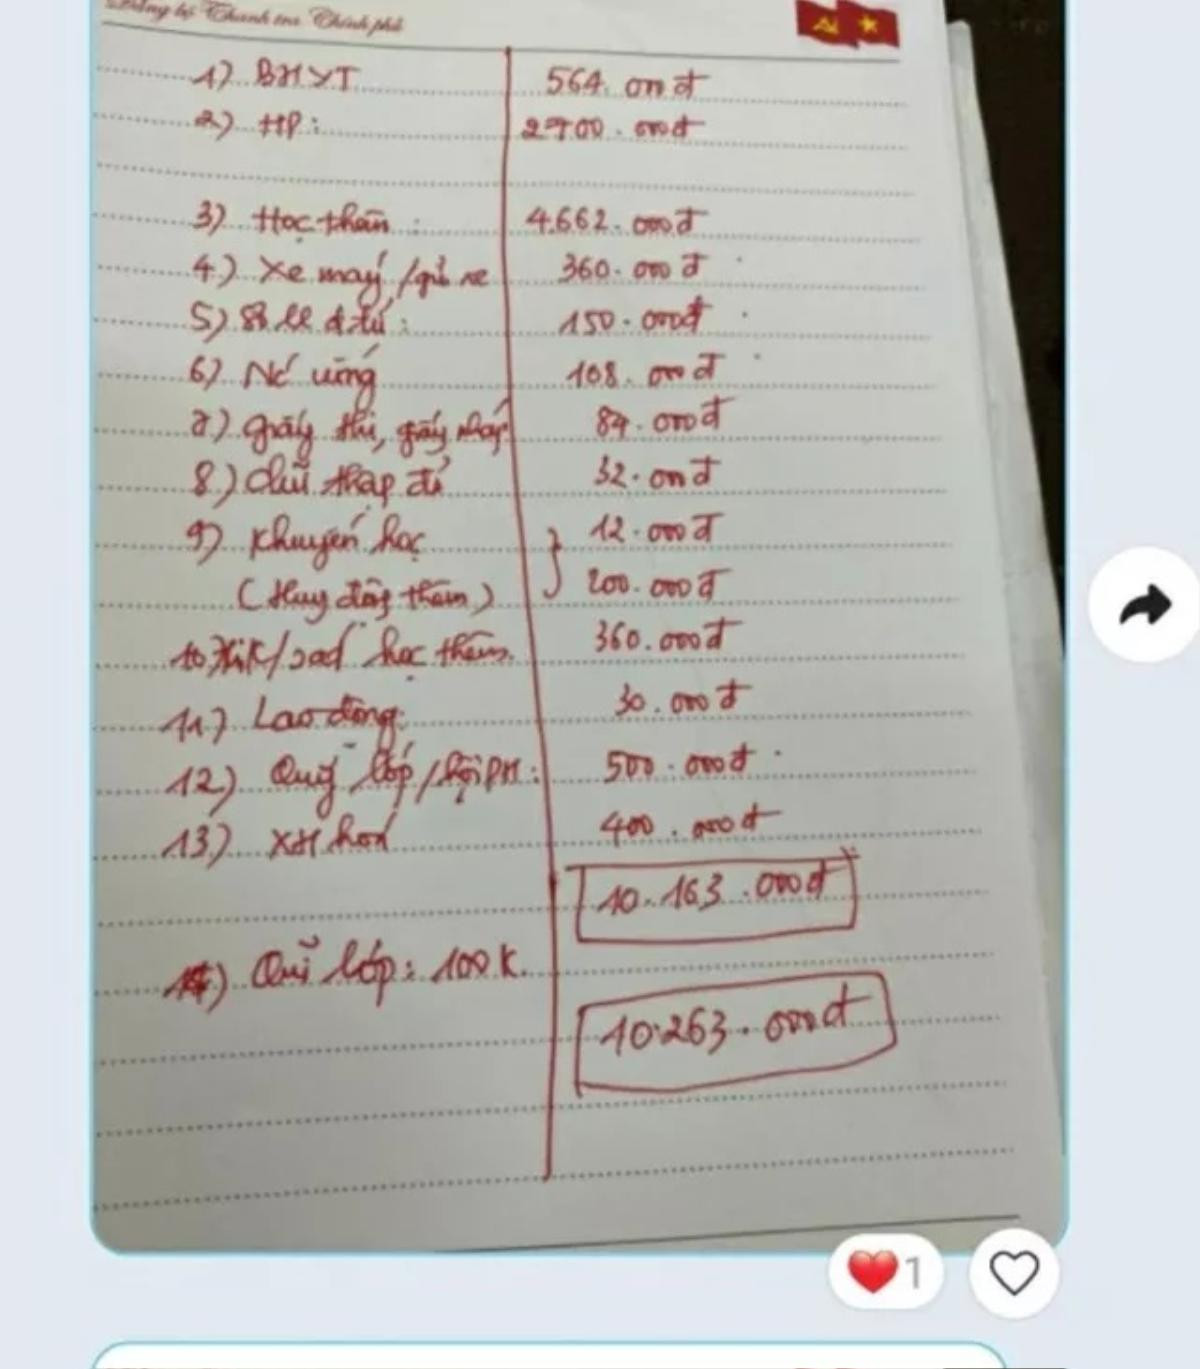 Đảng bộ Thanh tra Chính phủ
1) BHYT 564.000đ
2) HP: 2700.000đ
3) Học thêm: 4.662.000đ
4) Xe máy/gửi xe 360.000đ
5) Sổ LL đ.tử: 150.000đ
6) Nc uống 108.000đ
7) giấy thi, giấy nháp 84.000đ
8) Chữ thập đỏ 32.000đ
9) Khuyến học 12.000đ
(Huy động thêm) 200.000đ
10) /sad học thêm. 360.000đ
11) Lao động: 30.000đ
12) Quỹ lớp/hội PH: 500.000đ
13) XH hoá 400.000đ
10.163.000đ
14) Quĩ lớp: 100K.
10.263.000đ
1